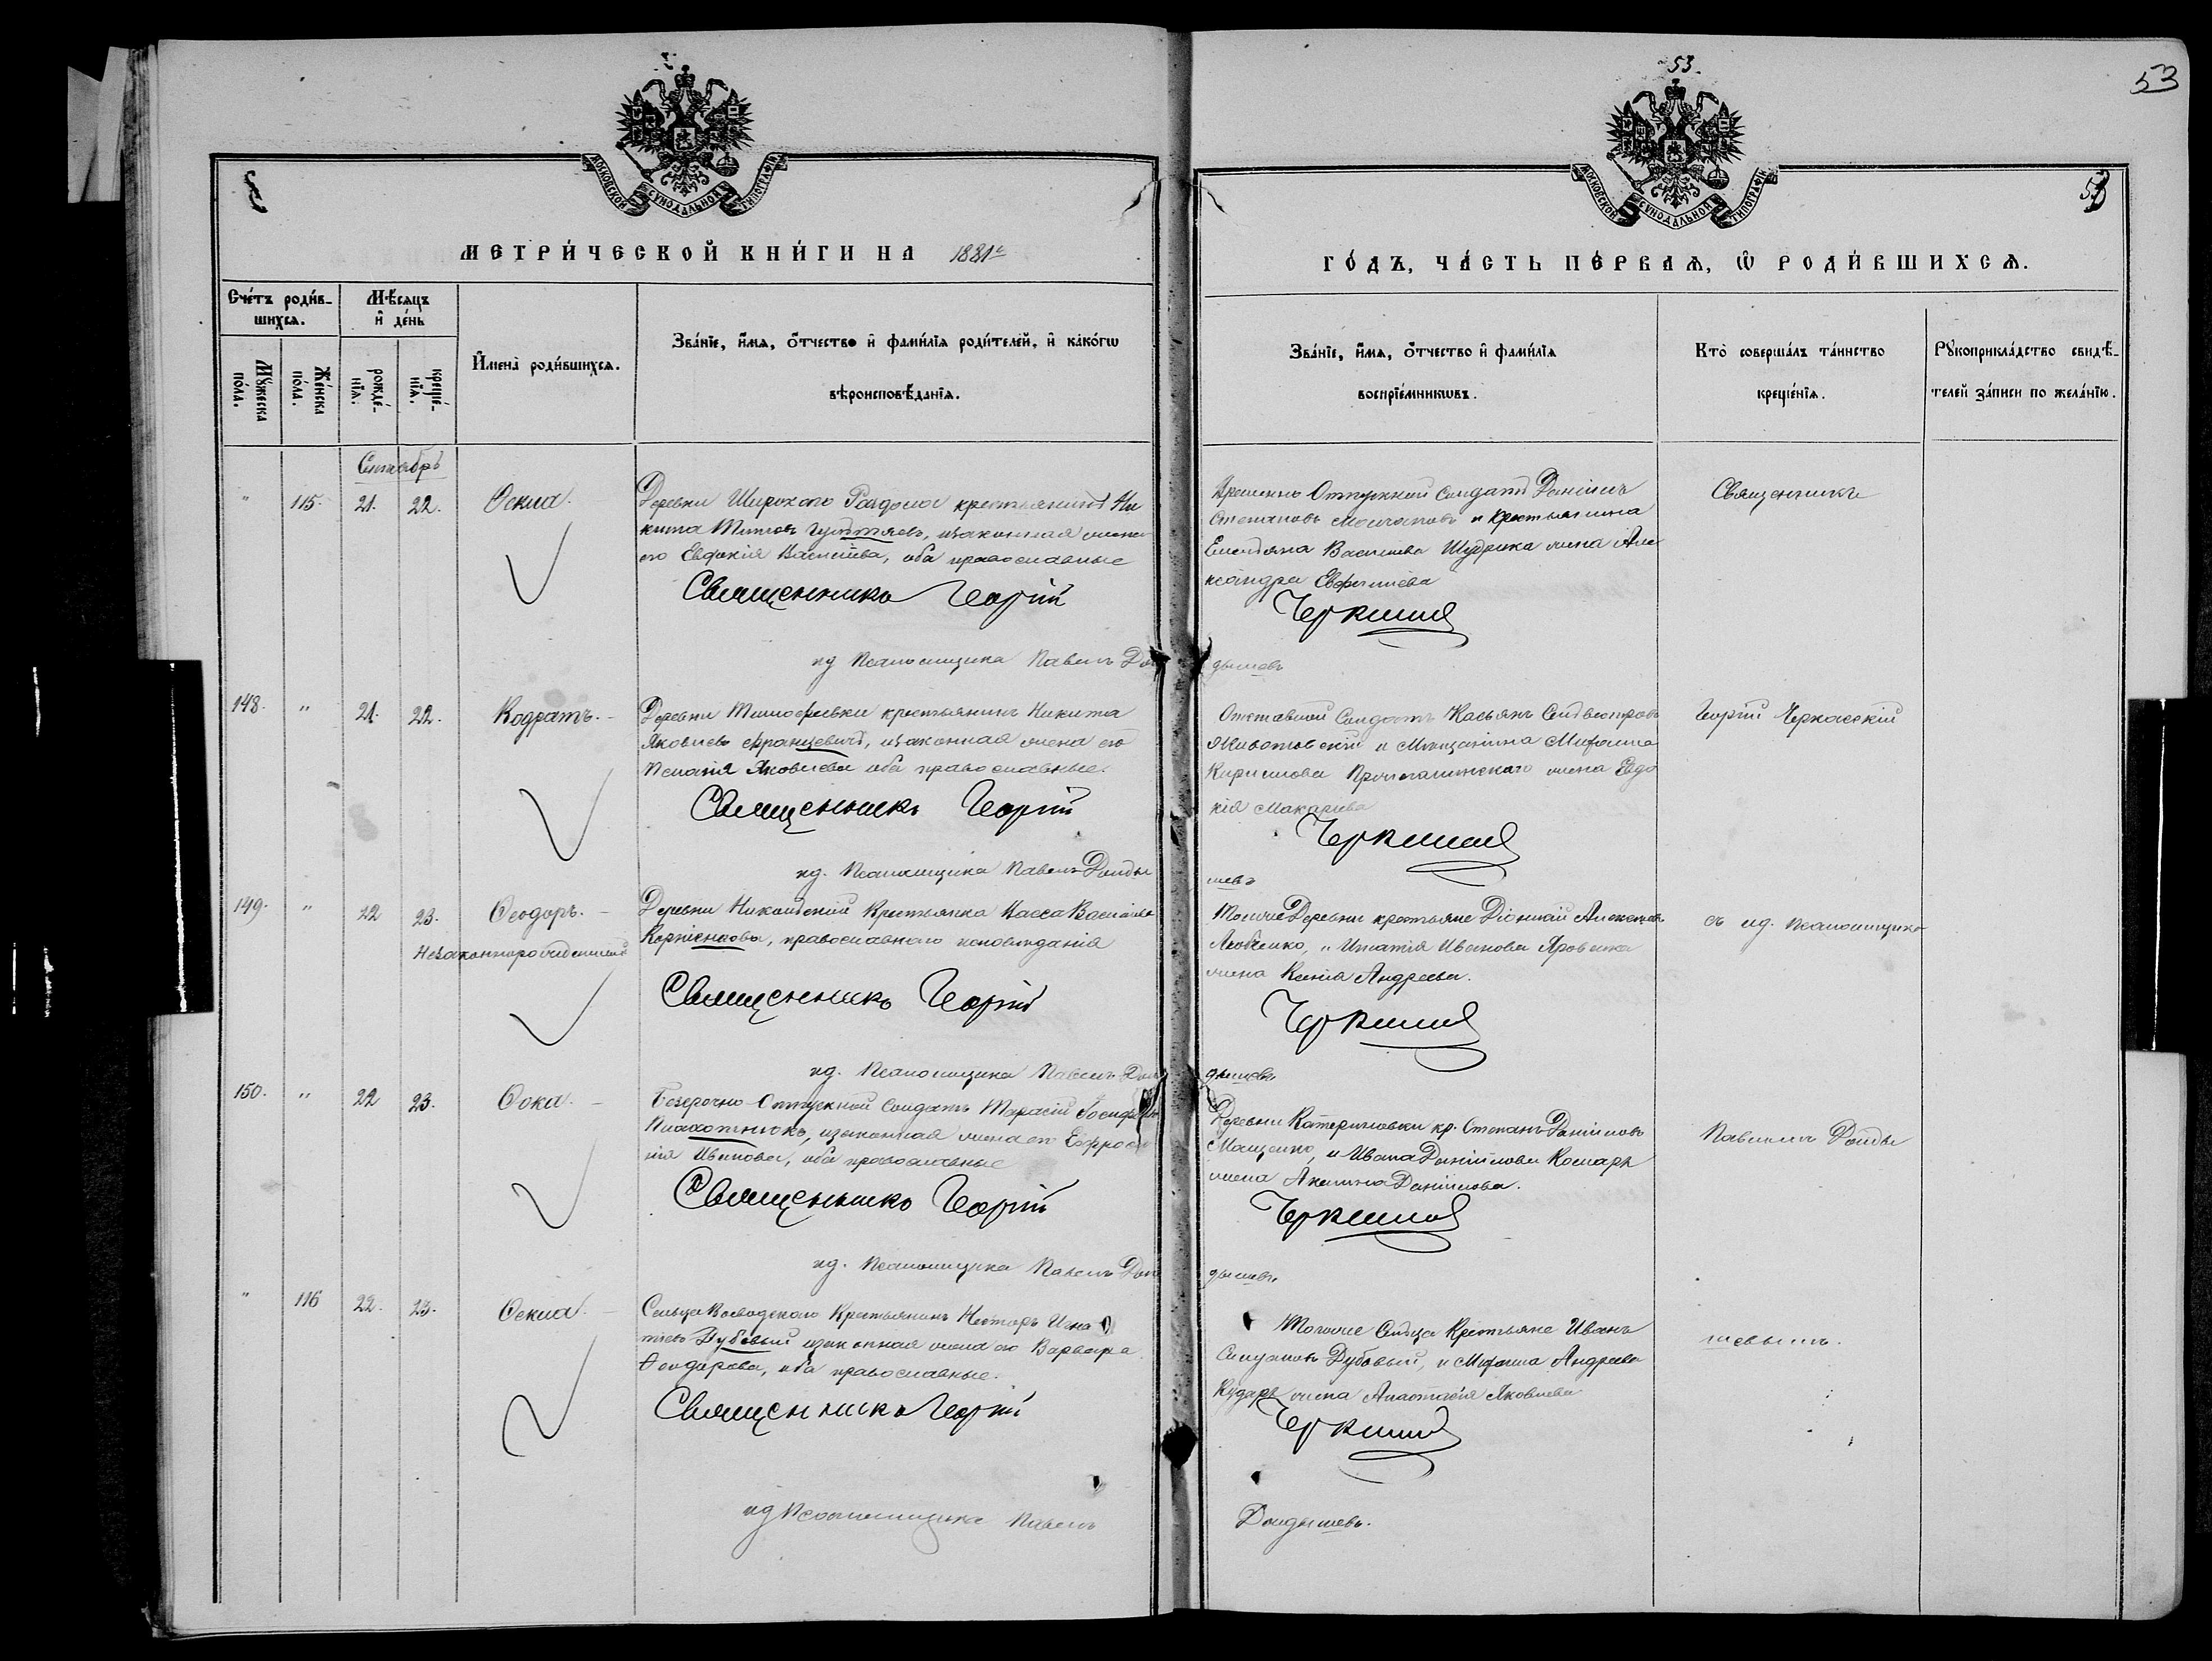 53.
53
53
МОСКОВСКОЙ СѴНОДАЛЬНОЙ ТИПОГРАФІИ
МОСКОВСКОЙ СѴНОДАЛЬНОЙ ТИПОГРАФІИ
МЕТРИ́ЧЕСКОЙ КНИ́ГИ НА 1881г
ГО́ДЪ, ЧА́СТЬ ПЕ́РВАѦ, Ѡ҆ РОДИ́ВШИХСѦ.
Сче́тъ роди́в-
шихсѧ.
Мꙋ́жеска
по́ла.
Же́нска
по́ла.
Мѣ́сѧцъ
и҆ де́нь
рожде́-
нїѧ.
креще́-
нїѧ.
И҆мена̀ роди́вшихсѧ.
Зва́нїе, и҆́мѧ, ѻ҆́тчество и҆ фами́лїѧ роди́телей, и҆ како́гѡ
вѣроисповѣ́данїѧ.
Зва́нїе, и҆́мѧ, ѻ҆́тчество и҆ фами́лїѧ
воспрїе́мникѡвъ.
Кто̀ соверша́лъ та́инство
креще́нїѧ.
Рꙋкоприкла́дство свидѣ́-
телей за́писи по жела́нїю.
Сентябрь
" 115. 21. 22. Ѳекла.
Деревни Широкаго Раздола крестьянинъ Ни
кита Титовъ, изаконная жена
его Евдокія Васильева, оба православные
Священникъ Георгій
ид Псаломщика Павелъ Дол
Временно Отпускной Солдатъ Даніилъ
Степановъ и Крестьянина
Емельяна Васильева Шудрика жена Але
ксандра
Черкаскій
дышевъ
Священникъ
148. " 21. 22. Кодратъ. -
Деревни Тимофеевки крестьянинъ Никита
Яковлевъ Францевичъ, изаконная жена его
Пелагія Яковлева оба православные.
Священникъ Георгій
ид. Псаломщика Павелъ Долды
Отставной Солдатъ Касьянъ Сильвестровъ
Животовскій и Мѣщанина Михаила
Кирилова жена Евдо
кія Макарьева
Черкаскій
шевъ
Георгій Черкаскій
149. " 22 23. Ѳеодоръ. -
Незаконнорожденный
Деревни Николаевской Крестьянка Васса Васильева
Корніенкова, православнаго исповѣданія
Священникъ Георгій
ид. Псаломщика Павелъ Дол
Тойже Деревни крестьяне Діонисій Алексеевъ
и Игнатія Иванова Яровенка
жена Ксенія Андреева.
Черкаскій
дышевъ
съ ид. Псаломщика
150. " 22 23. Ѳока. -
Безсрочно-Отпускной Солдатъ Тарасій Іосифовъ
Плахотнюкъ, изаконная жена его Ефроси
нія Иванова, оба православные
Священникъ Георгій
ид. Псаломщика Павелъ Дол
Деревни Катериновки кр. Степанъ Даніиловъ
Мащенко, и Ивана Даніилова Комаръ
жена Акилина Даніилова.
Черкаскій
дышевъ.
Павломъ Долды
" 116 22. 23. Ѳекла. -
Сельца Воеводскаго Крестьянинъ Несторъ Игна
тіевъ Дубовый изаконная жена его Варвара
Ѳеодорова, оба православные.
Священникъ Георгій
ид Псаломщика Павелъ
Тогоже Сельца Крестьяне Иванъ
Дубовый, и Михаила Андреева
Кударь жена Анастасія Яковлева
Черкаскій
Долдышевъ.
шевымъ.